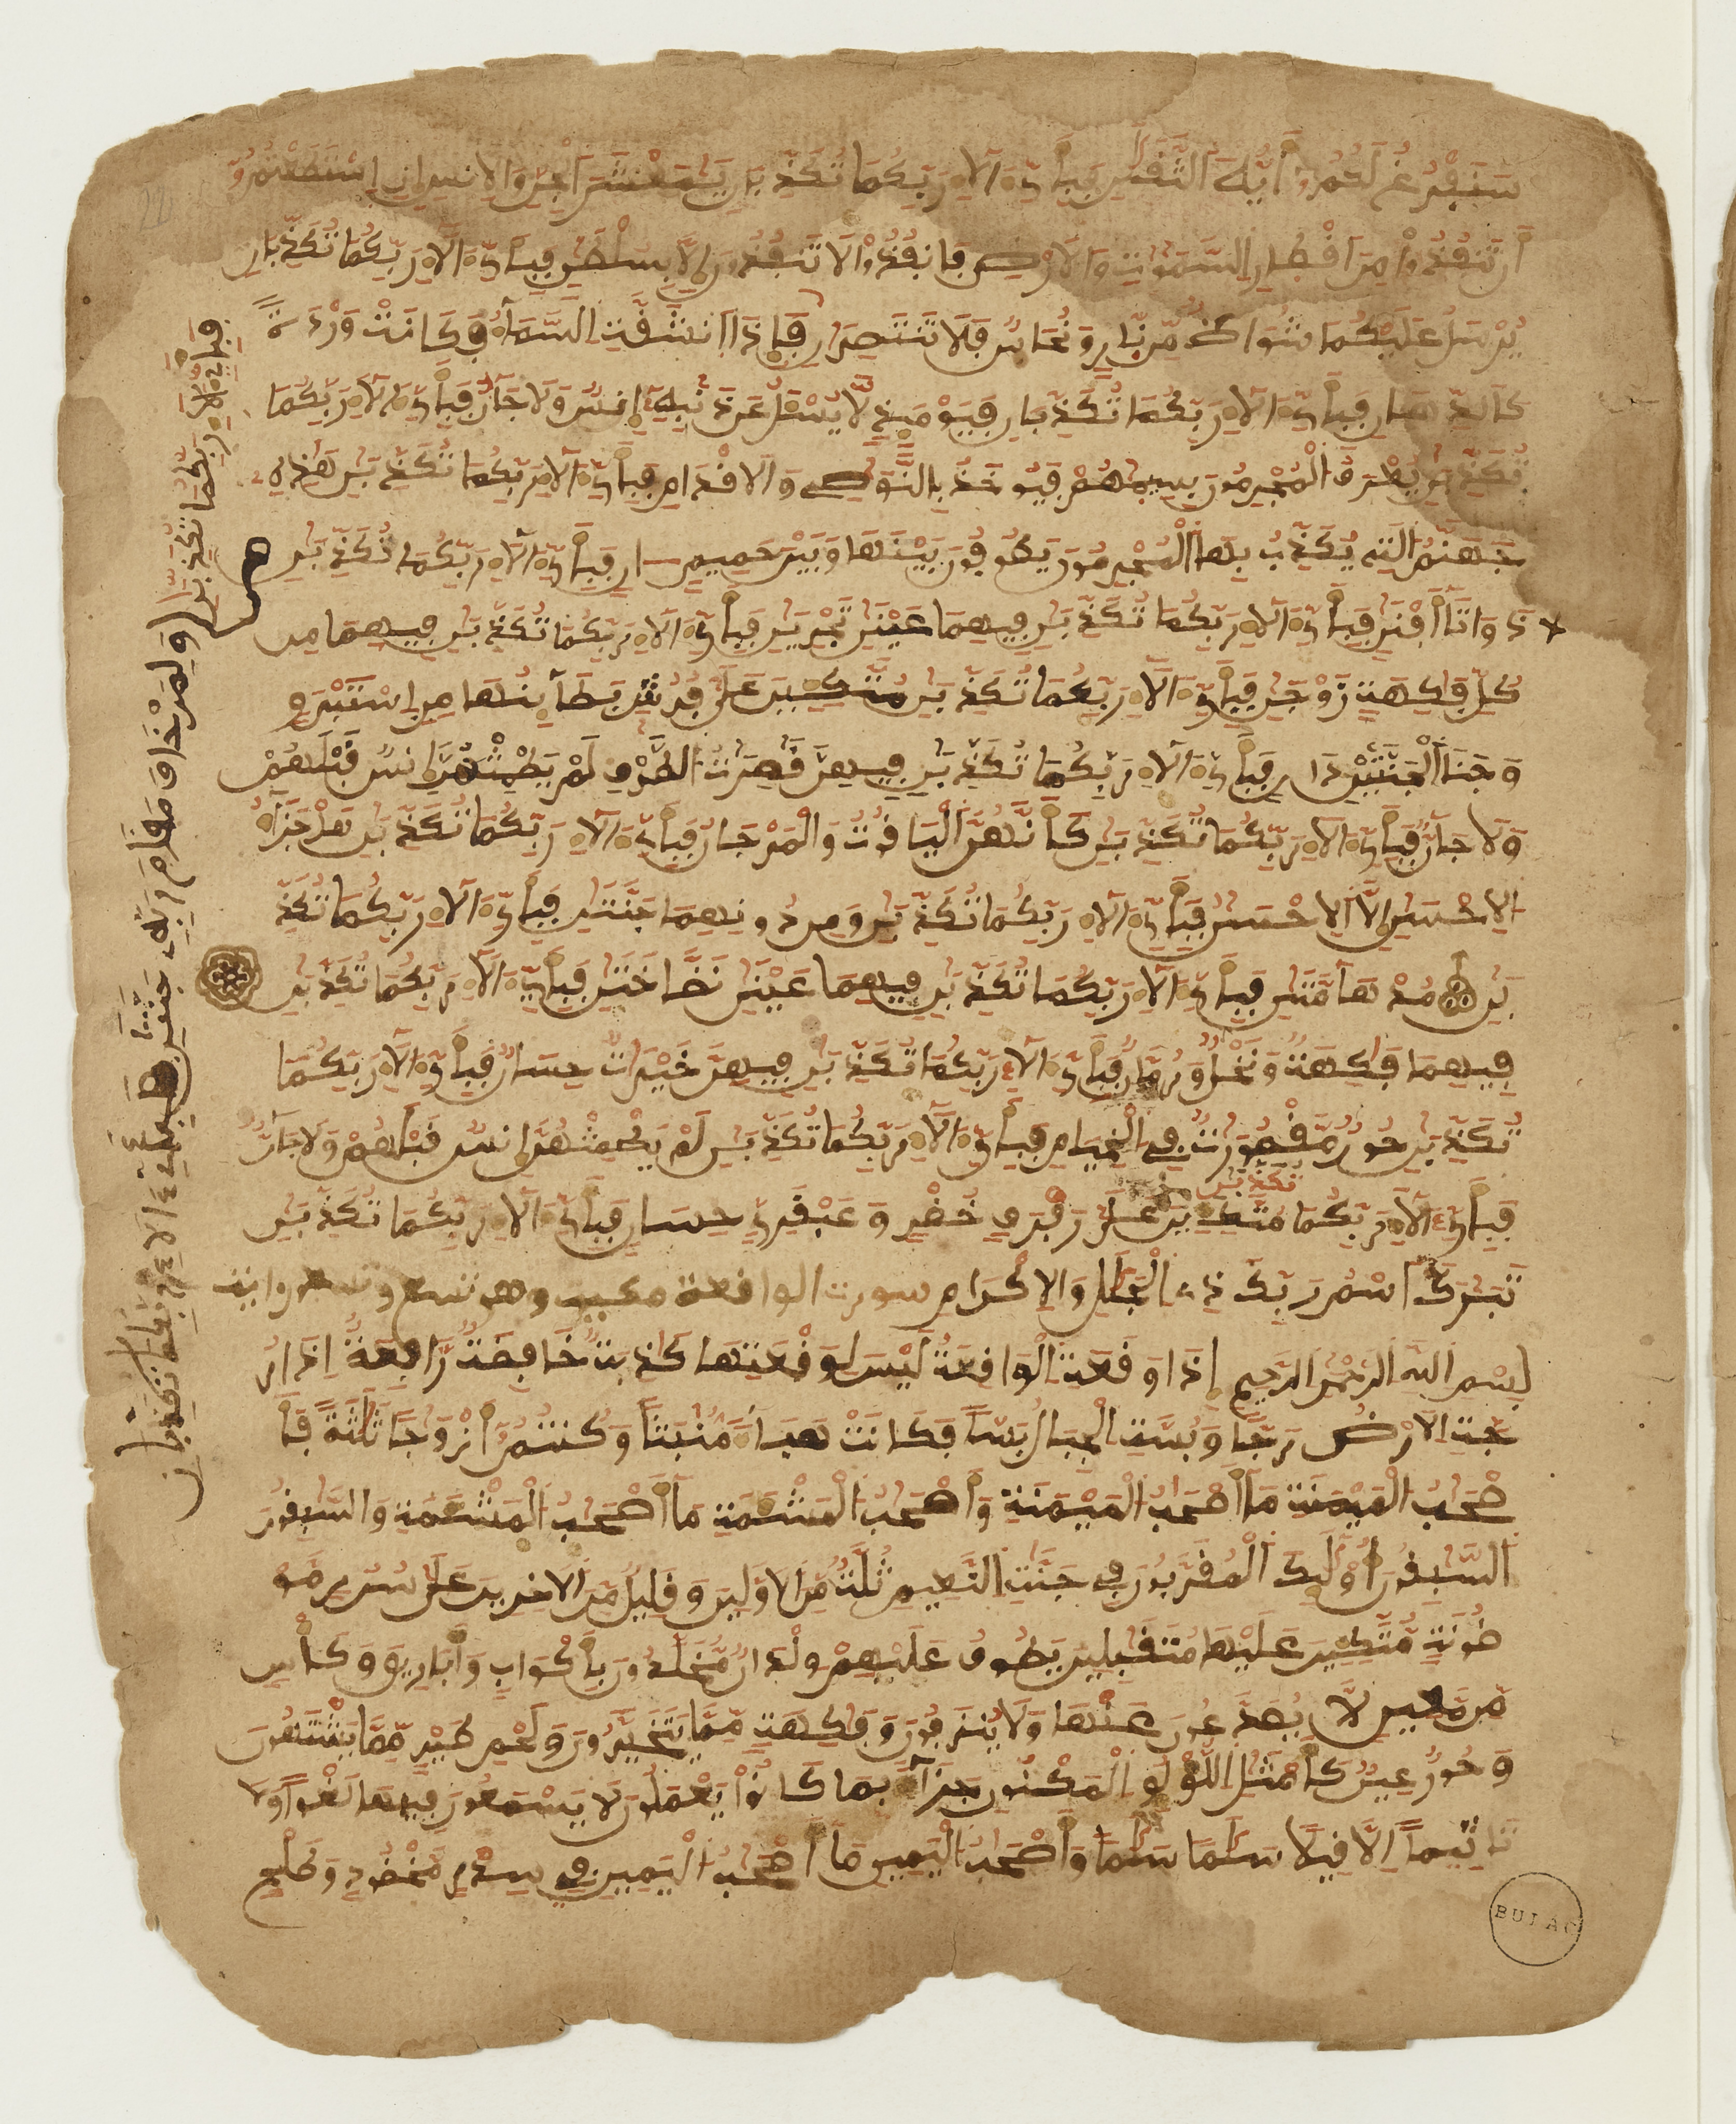 سنفرغ لكم أيه الثقلن فبأي ءالاء ربكما تكذبن يمعشر الجن والانس إن استطعتمو
أن تنفذوا من أقطار السموت والارض فانفذوا لا تنفذون إلا بسلطن فبأي ءالاء ربكما تكذبان
يرسل عليكما شواظ من نار ونحاس فلا تنتصران فإذا انشقت السماء فكانت وردة
كالدهان فبأي ءالاء ربكما تكذبان فيومئذ لا يسئل عن ذنبه إنس ولا جان فبأي ءالاء ربكما
تكذبن يعرف المجرمون بسيمهم فيوخذ بالنوصي والاقدام فبأي ءالاء ربكما تكذبن هذه
جهنم التي يكذب بها المجرمون يطوفون بينها وبين حميم ان فبأي ءالاء ربكما تكذبن
ذواتا أفنن فبأي ءالاء ربكما تكذبن فيهما عينن تجرين فبأي ءالاء ربكما تكذبن فيهما من
كل فكهة زوجن فبأي ءالاء ربكما تكذبن متكين على فرش بطاينها من استبرق
وجنا الجنتين دان فبأي ءالاء ربكما تكذبن فيهن قصرت الطرف لم يطمثهن إنس قبلهم
ولا جان فبأي ءالاء ربكما تكذبن كأنهن الياقوت والمرجان فبأي ءالاء ربكما تكذبن هل جزاء
الاحسن إلا الاحسن فبأي ءالاء ربكما تكذبن ومن دونهما جنتن فبأي ءالاء ربكما تكذ
بن مدهامتن فبأي ءالاء ربكما تكذبن فيهما عينن نضاختن فبأي ءالاء ربكما تكذبن
فيهما فكهة ونخل ورمان فبأي ءالاء ربكما تكذبن فيهن خيرات حسان فبأي ءالاء ربكما
تكذبن حور مقصورت في الخيام فبأي ءالاء ربكما تكذبن لم يطمثهن إنس قبلهم ولا جان
تكذبن
فبأي ءالاء ربكما متكين على رفرف خضر وعبقري حسان فبأي ءالاء ربكما تكذبن
تبرك اسم ربك ذي الجلل والاكرام سورت الواقعة مكية وهي تسع وتسعون اية
بسم الله الرحمن الرحيم إذا وقعت الواقعة ليس لوقعتها كذبة خافضة رافعة إذا ر
جت الارض رجا وبست الجبال بسا فكانت هباء منبثا وكنتم أزوجا ثلثة فأ
صحب الميمنة ما أصحب الميمنة وأصحب المشئمة ما أصحب المشئمة والسبقون
السبقون أولئك المقربون في جنت النعيم ثلة من الاولين وقليل من الاخرين على سرر مو
ضونة متكين عليها متقبلين يطوف عليهم ولدان مخلدون بأكواب وأباريق وكأس
من معين لا يصدعون عنها ولا ينزفون وفكهة مما يتخيرون ولحم طير مما يشتهون
وحور عين كأمثل اللؤلو المكنون جزاء بما كانوا يعملون لا يسمعون فيها لغوا ولا
تاثيما إلا قيلا سلما سلما وأصحب اليمين ما أصحب اليمين في سدر مخضود وطلح
فبأي ءالاء ربكما تكذبن ولمن خاف مقام ربه جنتن فبأي ءالاء ربكما تكذبان
22
BULAC